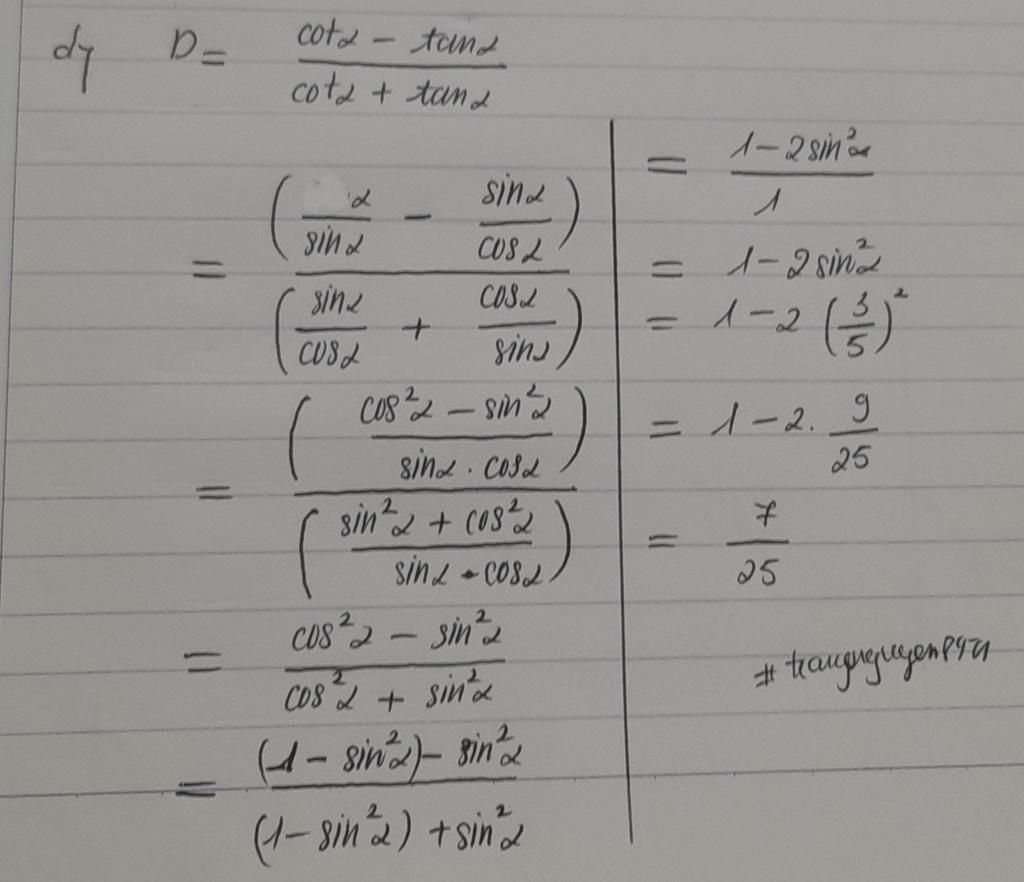 d) D = (cotα - tanα) / (cotα + tanα)
= (α/sinα - sinα/cosα) / (sinα/cosα + cosα/sinα)
= ((cos²α - sin²α)/(sinα . cosα)) / ((sin²α + cos²α)/(sinα . cosα))
= (cos²α - sin²α) / (cos²α + sin²α)
= ((1 - sin²α) - sin²α) / ((1 - sin²α) + sin²α)
= (1 - 2sin²α) / 1
= 1 - 2sin²α
= 1 - 2 (3/5)²
= 1 - 2. 9/25
= 7/25